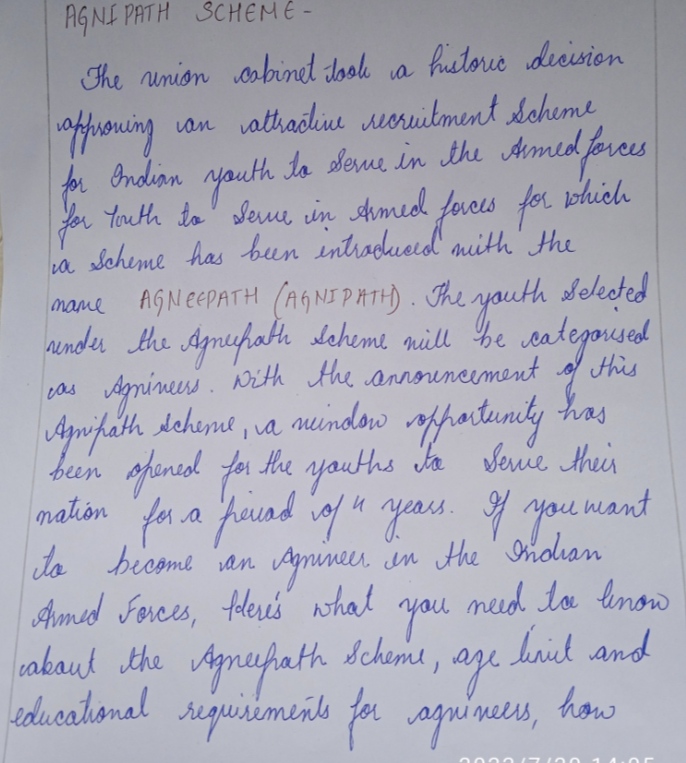 AGNIPATH SCHEME -
The union cabinet took a historic decision
approving an attractive recruitment Scheme
for Indian youth to Serve in the Armed forces
for Youth to Serve in Armed forces for which
a Scheme has been introduced with the
name AGNEEPATH (AGNIPATH). The youth Selected
under the Agneepath Scheme will be categorised
as Agniveers. With the announcement of this
Agnipath Scheme, a window opportunity has
been opened for the youths to Serve their
nation for a period of 4 years. If you want
to become an Agniveer in the Indian
Armed Forces, Here's what you need to know
about the Agneepath Scheme, age limit and
educational requirements for agniveers, how